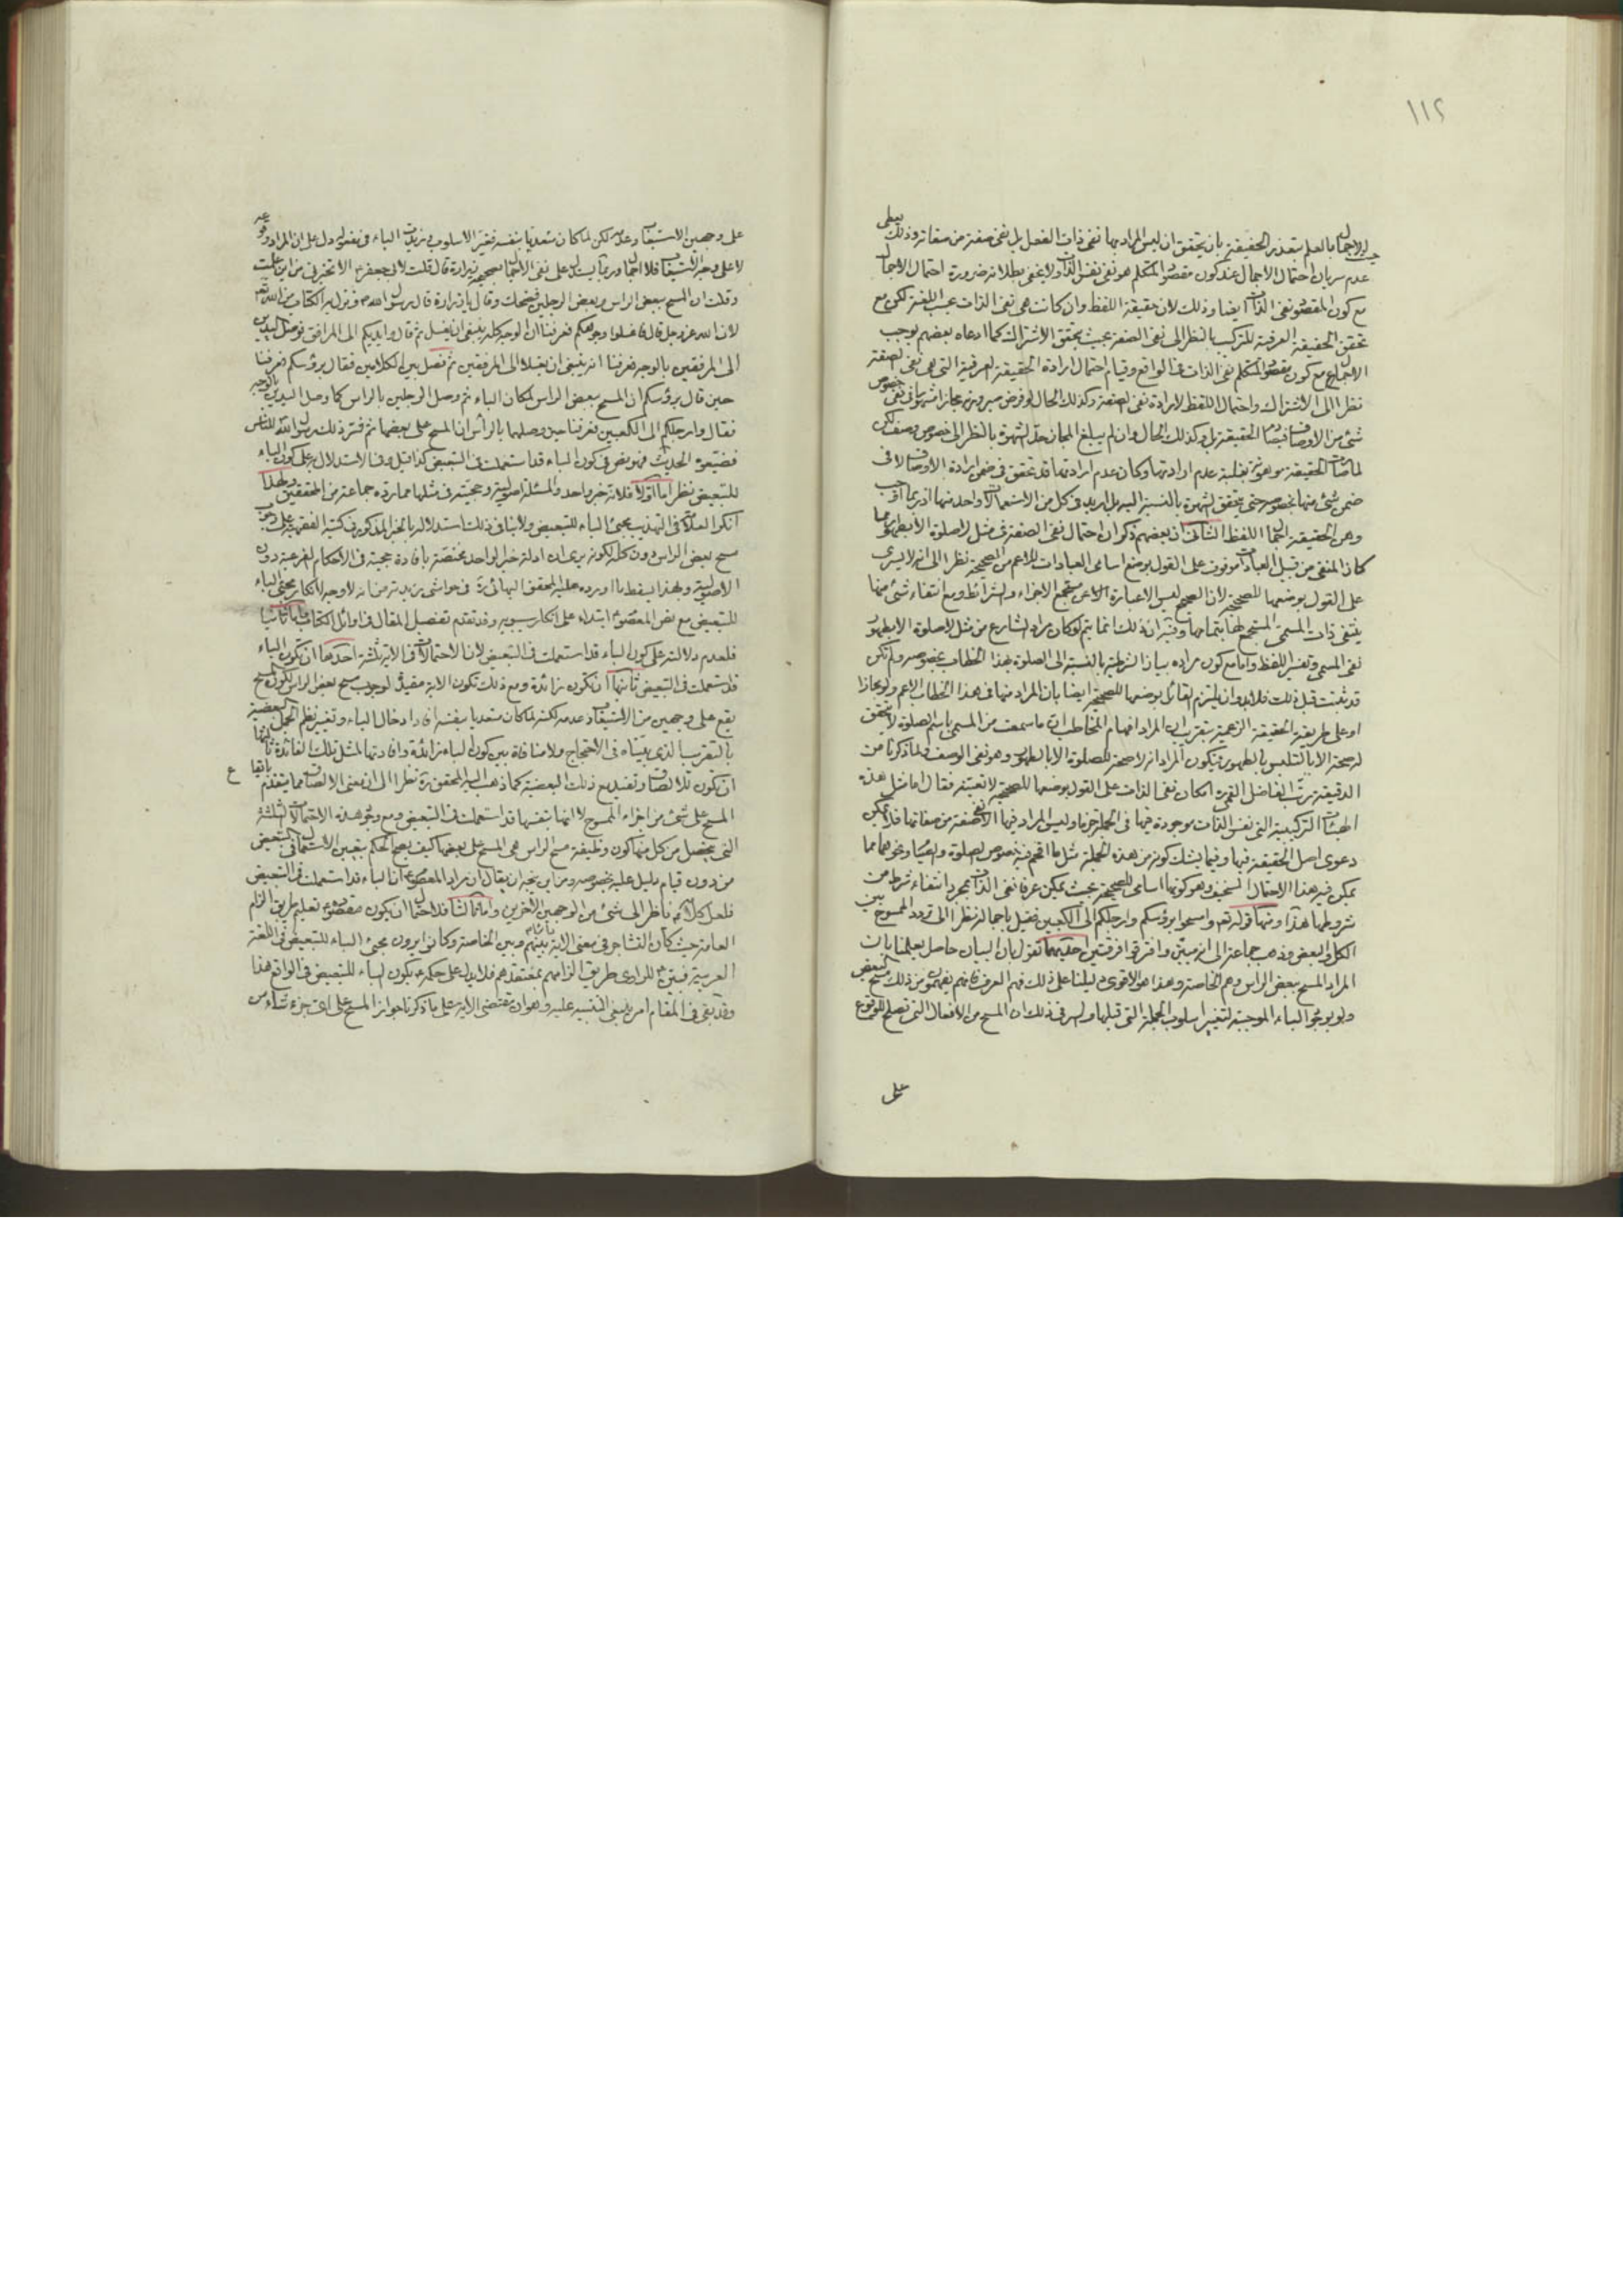 ١١٢
الاجمال بالعلم بتعذر الحقيقة بان يتحقق ان ليس المراد بها نفى ذات الفعل بل نفى صفة من صفاته وذلك يعطى
عدم سريان احتمال الاجمال عند كون مقصود المتكلم هو نفى نفس الذات ولا يخفى بطلانه ضرورة احتمال الاجمال
مع كون المقصود نفى الذات ايضا وذلك لان حقيقة اللفظ وان كانت هى نفى الذات بحسب اللغة لكن مع
تحقق الحقيقة العرفية للتركيب بالنظر الى نفى الصفة بحيث يتحقق الاشتراك كما ادعاه بعضهم يوجب
الاجمال مع كون مقصود المتكلم نفى الذات فى الواقع وقيام احتمال ارادة الحقيقة العرفية التى هى نفى الصفة
نظرا الى الاشتراك واحتمال اللفظ لارادة نفى الصفة وكذلك الحال لو فرض صيرورته مجازا مشهورا فى نفى خصوص
شئ من الاوصاف الحقيقة بل وكذلك الحال وان لم يبلغ المجاز حد الشهرة بالنظر الى خصوص وصف لكن
لما صارت الحقيقة موهونة بغلبة عدم ارادتها وكان عدم ارادتها قد تحقق فى ضمن ارادة الاوصاف لا فى
ضمن شئ منها بخصوصه حتى يتحقق الشهرة بالنسبة اليه بل اريد فى كل من الاستعمالات واحد منها
وهن الحقيقة اجمال اللفظ الثانى ان بعضهم ذكر ان احتمال نفى الصفة فى مثل لا صلوة الا بطهور مما
كان المنفى من قبيل العبادات موقوف على القول بوضع اسامى العبادات للاعم من الصحيحة نظرا الى انه لا يسرى
على القول بوضعها للصحيحة لان الصحيح ليس الا عبارة عن مستجمع الاجزاء والشرائط ومع انتفاء شئ منها
ينتفى ذات المسمى المستجمع لها بتمامها وفيه ان ذلك انما يتم لو كان مراد الشارع من مثل لا صلوة الا بطهور
نفى المسمى وتفسير اللفظ واما مع كون مراده بيان الشرطية بالنسبة الى الصلوة بهذا الخطاب بخصوصه ولم تكن
قد ثبتت قبل ذلك فلا بد وان يلتزم القائل بوضعها للصحيحة ايضا بان المراد منها فى هذا الخطاب الاعم ولو مجازا
او على طريقة الحقيقة الزعمية بتقريب ان المراد افهام المخاطب ان ما سمعت من المسمى باسم الصلوة لا تحقق
له صحة الا بالتلبس بالطهور فيكون المراد انه لا صحة للصلوة الا بالطهور وهو نفى الوصف ولما ذكرنا من
الدقيقة رتب الفاضل القمى ره امكان نفى الذات على القول بوضعها للصحيحة لا تعينه فقال اما مثل هذه
الهيئات التركيبية التى نفس الذات موجودة فيها فى الجملة جزما وليس المراد فيها الا نفى صفة من صفاتها فلا يمكن
دعوى اصل الحقيقة فيها وفيما يشك كونه من هذه الجملة مثل ما اقحم فيه خصوص الصلوة والصيام ونحوهما مما
يمكن فيه هذا الاحتمال السخيف وهو كونها اسامى للصحيحة بحيث يمكن عرفا نفى الذات بمجرد انتفاء شرط من
شروطها هذا ومنها قوله تعه وامسحوا برؤسكم وارجلكم الى الكعبين فقيل باجماله نظرا الى تردد الممسوح بين
الكل والبعض وذهب جماعة الى انه مبين وافترقوا فرقتين احديهما تقول بان البيان حاصل بعلمنا بان
المراد المسح ببعض الراس وهم الخاصة وهذا هو الاقوى دليلنا على ذلك فهم العرف فانهم يفهمون من ذلك مسح البعض
ولو بوجود الباء الموجبة لتغيير اسلوب الجملة التى قبلها والسر فى ذلك ان المسح من الافعال التى تصلح للوقوع
على
على وجهين الاستيعاب وعدمه لكن لما كان متعديا بنفسه فتغيير الاسلوب بزيادة الباء فى مفعوله دل على ان المراد وقوعه
لا على وجه الاستيعاب فلا اجمال وربما يستدل على نفى الاجمال بصحيحة زرارة قال قلت لابى جعفر ع الا تخبرنى من اين علمت
وقلت ان المسح ببعض الراس وبعض الرجلين فضحك وقال يا زرارة قال رسول الله ص ونزل به الكتاب من الله تعه
لان الله عز وجل قال فاغسلوا وجوهكم فعرفنا ان الوجه كله ينبغى ان يغسل ثم قال وايديكم الى المرافق فوصل اليدين
الى المرفقين بالوجه فعرفنا انه ينبغى ان يغسلا الى المرفقين ثم فصل بين الكلامين فقال برؤسكم فعرفنا
حين قال برؤسكم ان المسح ببعض الراس لمكان الباء ثم وصل الرجلين بالراس كما وصل اليدين بالوجه
فقال وارجلكم الى الكعبين فعرفنا حين وصلهما بالرأس ان المسح على بعضهما ثم فسر ذلك رسول الله للناس
فضيعوه الحديث فهو نص فى كون الباء قد استعملت فى التبعيض كذا قيل وفى الاستدلال به على كون الباء
للتبعيض نظر اما اولا فلانه خبر واحد والمسئلة اصولية وحجيته فى مثلها مما رده جماعة من المحققين ولهذا
انكر العلامة فى التهذيب مجئ الباء للتبعيض ولا ينافى ذلك استدلاله بالخبر المذكور فى كتبه الفقهية على وجوب
مسح بعض الراس دون كله لكونه يرى ان ادلة خبر الواحد مختصة بافادة حجيته فى الاحكام الفرعية دون
الاصولية وبهذا يسقط ما اورده عليه المحقق البهائى ره فى حواشى زبدته من انه لا وجه لانكار مجئ الباء
للتبعيض مع نص المعصوم ابتداء على انكار سيبويه وقد تقدم تفصيل المقال فى اوائل الكتاب واما ثانيا
فلعدم دلالته على كون الباء قد استعملت فى التبعيض لان الاحتمالات فى الاية ثلثة احدها ان تكون الباء
قد استعملت فى التبعيض ثانيها ان تكون زائدة ومع ذلك تكون الاية مفيدة لوجوب مسح بعض الراس لكون المسح
يقع على وجهين من الاستيعاب وعدمه لكنه لما كان متعديا بنفسه افاد ادخال الباء وتغيير نظم الجمل البعضية
بالتقريب الذى بيناه فى الاحتجاج ولا منافاة بين كون الباء زائدة وافادتها لمثل تلك الفائدة ثالثها
ان تكون للالصاق وتفيد مع ذلك البعضية كما ذهب اليه المحقق ره نظرا الى ان معنى الالصاق مما يتقدم بايقاع
المسح على شئ من اجزاء الممسوح لا انها بنفسها قد استعملت فى التبعيض ومع وجود هذه الاحتمالات الثلثة
التى يحصل من كل منها كون وظيفة مسح الراس هى المسح على بعضها كيف يصح الحكم بتعيين الاستعمال فى التبعيض
من دون قيام دليل عليه بخصوصه ومن اين يتجه ان يقال ان مراد المعصوم ع ان الباء قد استعملت فى التبعيض
فلعل كلامه ناظر الى شئ من الوجهين الاخرين واما ثالثا فلاحتمال ان يكون مقصوده ع تعليم طريق الزام
العامة حيث كان التشاجر فى معنى الاية بينهم وبين الخاصة وكانوا يرون مجئ الباء للتبعيض فى اللغة
العربية فبين ع للراوى طريق الزامهم بمعتقدهم فلا يدل على حكمه بكون الباء للتبعيض فى الواقع هذا
وقد بقى فى المقام امر ينبغى التنبيه عليه وهو ان مقتضى الاية على ما ذكرنا جواز المسح على اى جزء شاء من